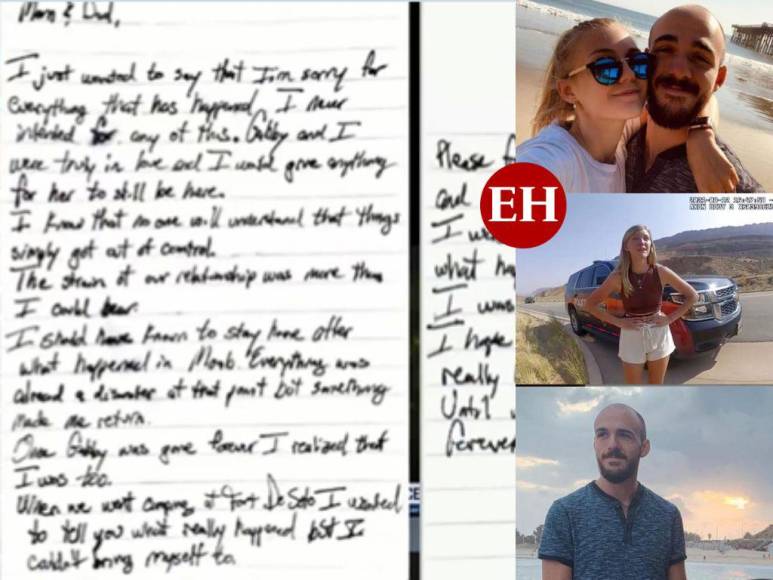 Mom & Dad,
I just wanted to say that I'm sorry for
everything that has happened. I never
intended for any of this. Gabby and I
were truly in love and I would give anything
for her to still be here.
I know that no one will understand that things
simply got out of control.
The strain of our relationship was more than
I could bear.
I should have known to stay home after
what happened in Moab. Everything was
already a disaster at that point but something
made me return.
Once Gabby was gone forever I realized that
I was too.
When we went camping at Fort De Soto I wanted
to tell you what really happened but I
couldn't bring myself to.
Please
and
I
what
I was
I hope
really
Until
forever
EH